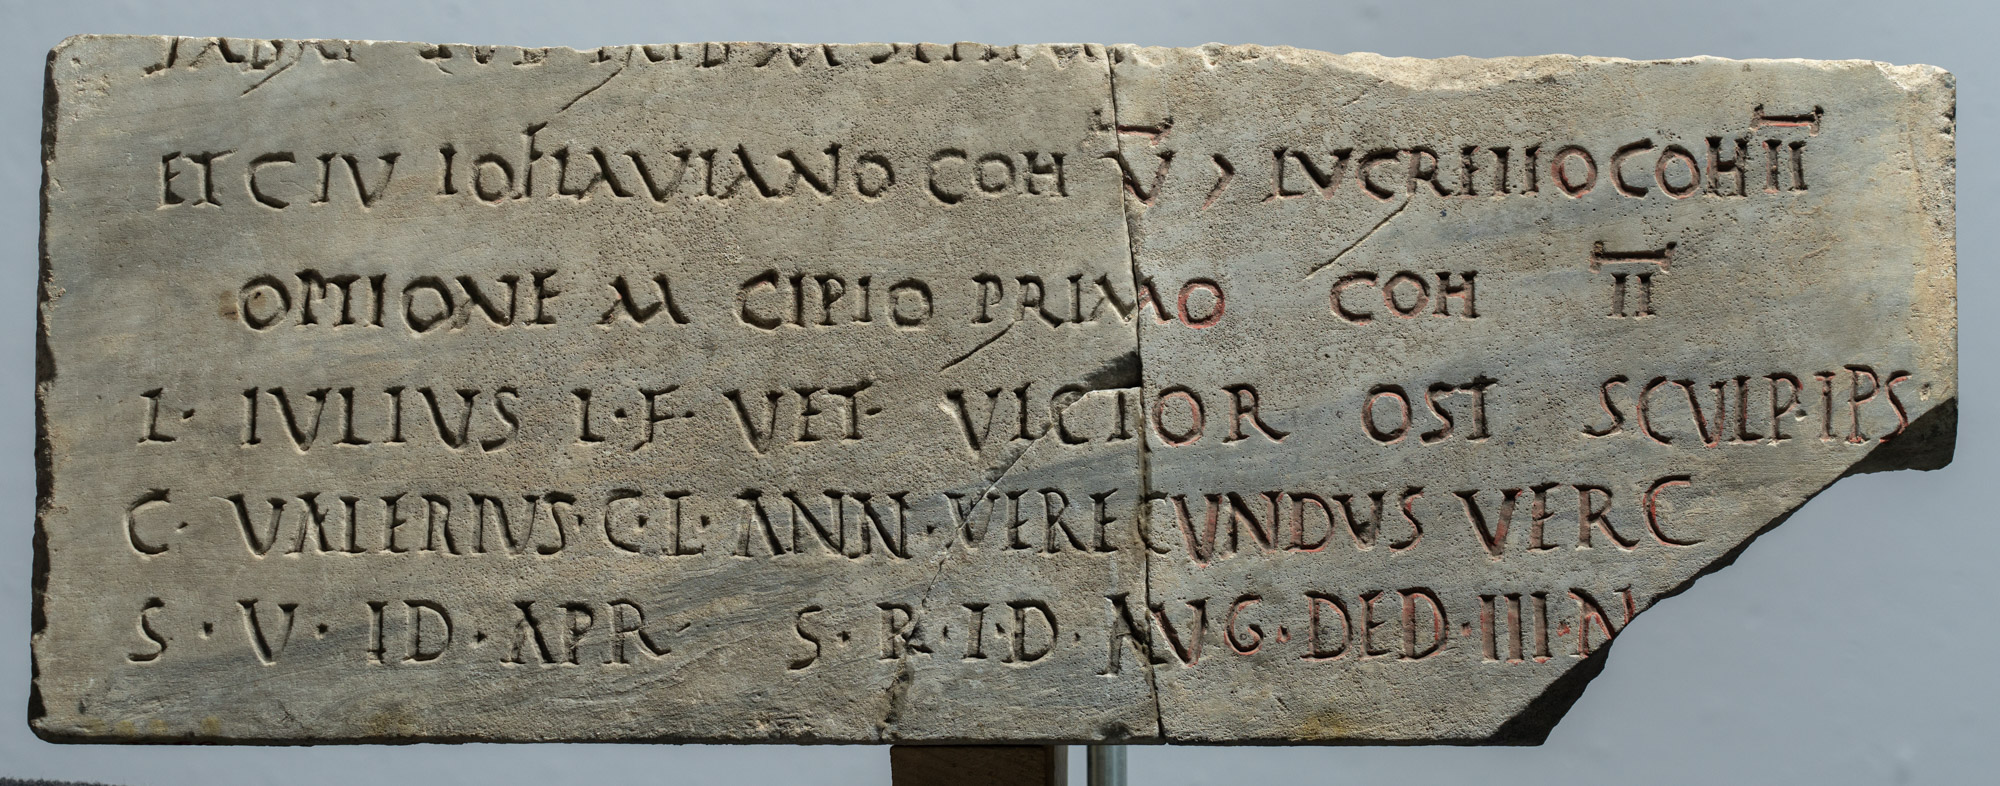 ET CIVLIO FLAVIANO COH V̅ > LVCRETIO COH I̅I̅
OPTIONE M CIPIO PRIMO COH I̅I̅
L· IVLIVS L·F· VET· VICTOR OST SCVLP·IPS·
C· VALERIVS·C·L·ANN·VERECVNDVS VERC
S·V·ID·APR· S·R·I·D·AVG·DED·III·N